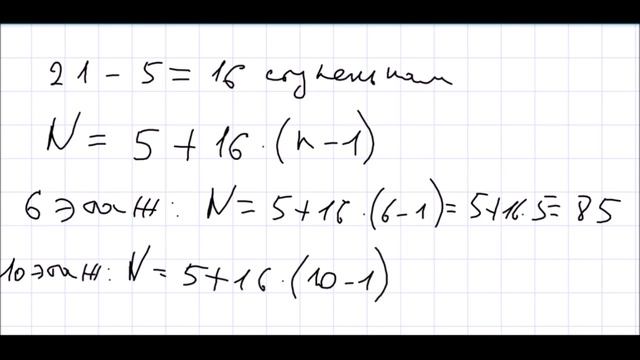 21 - 5 = 16 ступенькам
N = 5 + 16 · (n - 1)
6 этаж: N = 5 + 16 · (6 - 1) = 5 + 16 · 5 = 85
10 этаж: N = 5 + 16 · (10 - 1)